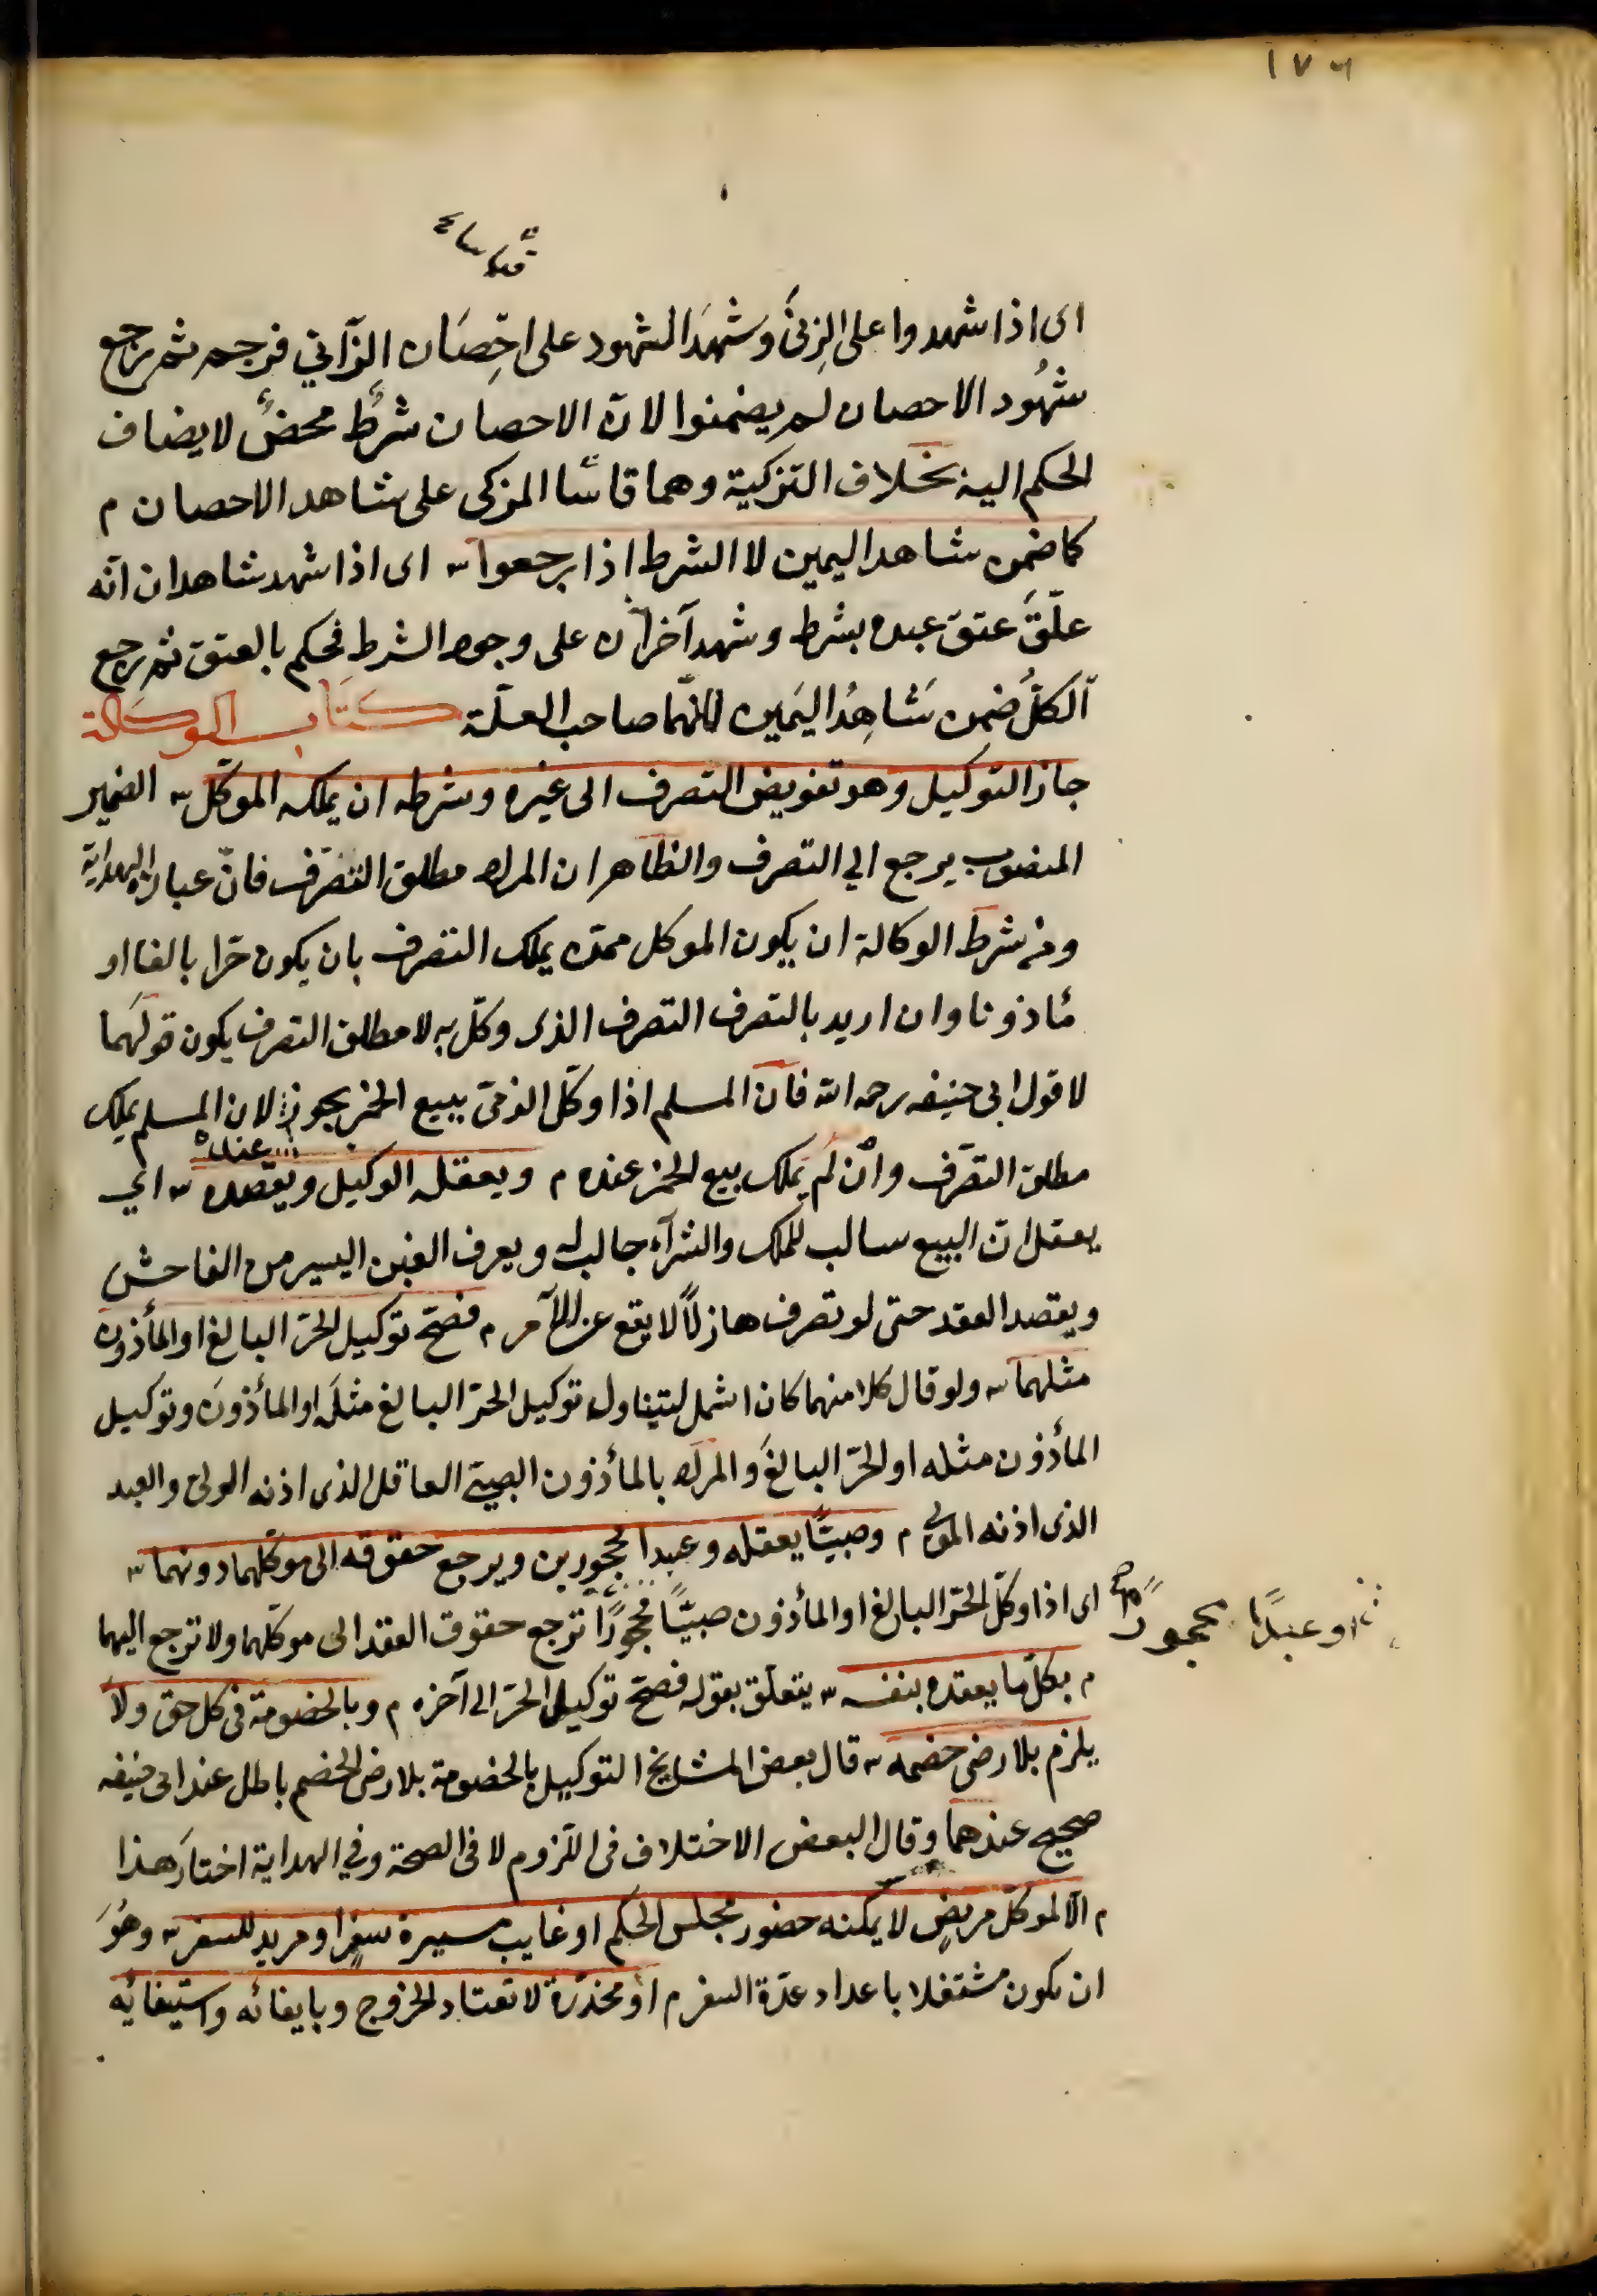 ١٧٦
اى اذا شهدوا على الزنىٰ وشهدَ الشهود على احِصَان الزّاني فرجم ثم رجع
شهُود الاحصان لم يضمنوا لانّ الاحصان شرطٌ محضٌ لا يضاف
الحكم اليه بخلاف التزكية وهما قاسَا المزكى على شاهد الاحصان م
كما ضمن شاهدا اليمين لا الشرط اذا رجعوا ش اى اذا شهد شاهدان انّه
علّقَ عتق عبده بشرط وشهد آخرَان على وجود الشرط فحكم بالعتق ثم رجع
الكلُّ ضمن شَاهِدُا اليَمين لانّهما صاحب العلّة كتاب الوكالة
جاز التوكيل وهو تفويض التصرف الى غيره وشرطه ان يملكه الموكّل ش الضمير
المنصوب يرجع الي التصرف والظاهر ان المراد مطلق التصّرف فانّ عبارة الهداية
ومن شرط الوكالة ان يكون الموكل ممّن يملك التصرف بان يكون حرّا بالغا او
مأذونا وان اريد بالتصرف التصرف الذى وكّل به لا مطلق التصرف يكون قولَهما
لا قول ابى حنيفه رحمه الله فانّ المسلم اذا وكّل الذمىّ ببيع الخمر يجوز عنده لان المسلم يملك
مطلق التصّرف وانْ لَم يَملك بيع الخمر عنده م ويعقله الوكيل ويقصده ش اي
يعقل انّ البيع سالب للملك والشرآء جالب له ويعرف الغبن اليسير من الفاحش
ويقصد العقد حتى لو تصرف هازلاً لا يقع عن الآمر م فصحّ توكيل الحرّ البالغ او المأذون
مثلهما ش ولو قال كلا منهما كان اشمل لتيناول توكيل الحرّ البالغ مثلَه او المأذونَ وتوكيل
المأذون مثله او الحرّ البالغَ والمراد بالمأذون الصبىّ العاقل الذى اذنه الولىّ والعبد
الذى اذنه المولى م وصبيًّا يعقله وعبدا محجورين ويرجع حقوقه الى موكّلهما دونهما ش
اى اذا وكّل الحرّ البالغ او المأذون صبيًّا محجورًا ترجع حقوق العقد الى موكّلهما ولا ترجع اليهما
او عبدًا محجورًا صح
م بكلّ ما يعقده بنفسه ش يتعلّق بقوله فصحّ توكيل الحرّ الى آخره م وبالخصومة فى كل حق ولا
يلزم بلا رضى خصمه ش قال بعض المشايخ التوكيل بالخصومة بلا رضى الخصم باطل عند ابى حنيفه
صحيح عندهما وقال البعض الاختلاف فى اللّزوم لا فى الصحة وفي الهداية اختارَ هذا
م الّا لموكّل مريضٍ لا يمكنه حضور مجلس الحكم او غايب مسيرة سفرٍ او مريد للسفر ش وهُوَ
ان يكون مشتغلا باعداد عدّة السفر م او مخدّرة لا تعتاد الخروج وبايفائه واستيفائِه